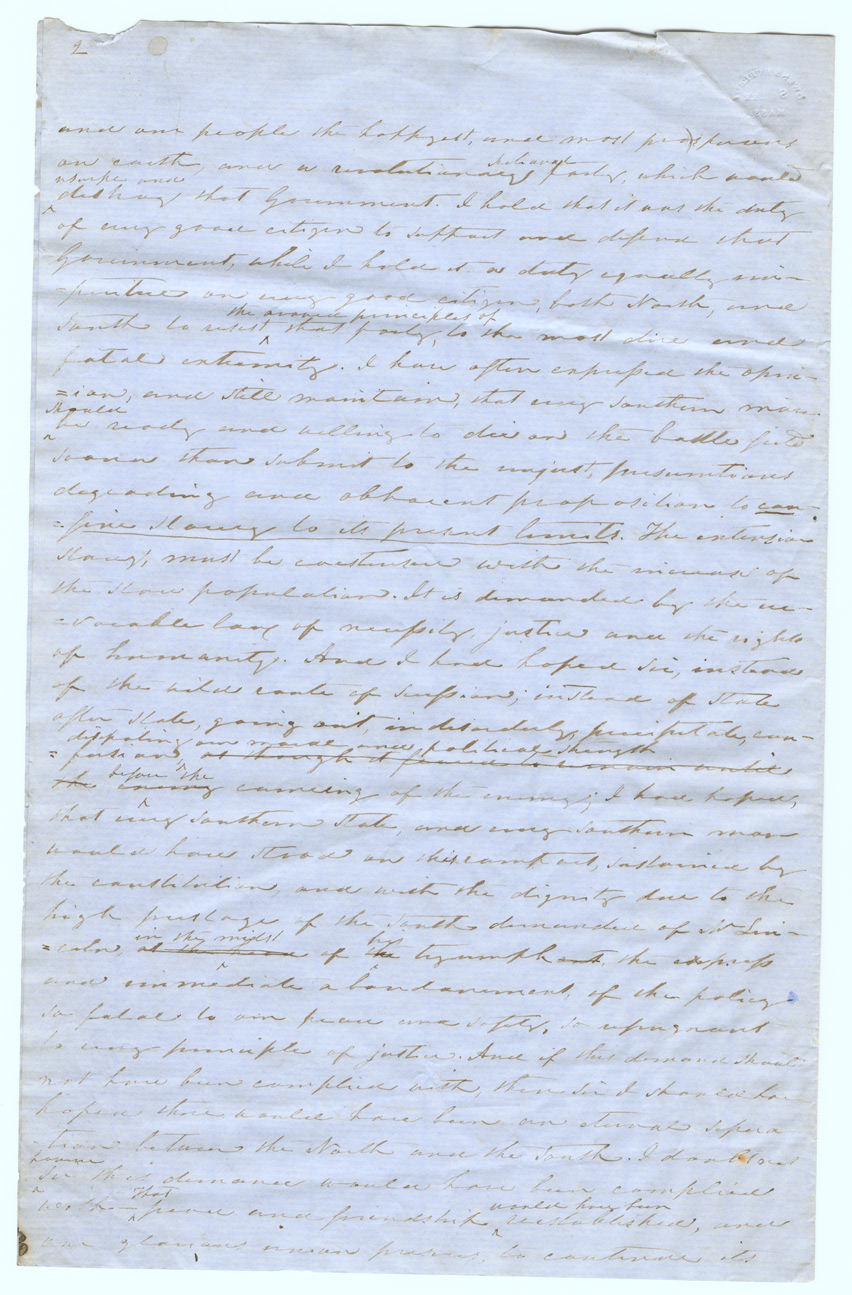 2
and our people the happyest, and most prosperous
on earth, and a revolutionary declared party, which would
usurp and
destroy that Government. I hold that it was the duty
of every good citizen to support and defend that
Government, while I hold it a duty equally im-
=perative on every good citizen, both North, and
the avowed principles of
South to resist that party, to the most dire and
fatal extremity. I have often expressed the opin-
=ion, and still maintain, that every Southern man
should
be ready and willing to die on the battle field
sooner than submit to the unjust, presumtious
degrading and abhorent proposition to con-
=fine slavery to its present limits. The extension
slavery, must be coextensive with the increase of
the slave population. It is demanded by the ir-
=vocable law of necessity, justice and the rights
of humanity. And I had hoped Sir, instead
of the wild route of secession; instead of State
after State, going out, in disorderly, precipitate, con-
dissipating our moral and political strength
=fusion, as though it feared to remain until
before the
the enemy comeing of the enemy; I had hoped,
that every Southern State, and every Southern man
would have stood on this compact, sustained by
the constitution, and with the dignity due to the
high prestage of the South demanded of Mr Lin-
in the midst his
=coln, of the tryumph, the express
and immediate abandonement, of the policy
so fatal to our peace and safety, so repugnant
to every principle of justice. And if this demand should
not have been complied with, then Sir I should have
hoped there would have been an eternal sepera
tion between the North and the South. I doubt not
Sir this demand would have been complied
that would have been
with peace and friendship reestablished, and
our glorious union preserved, to continue its